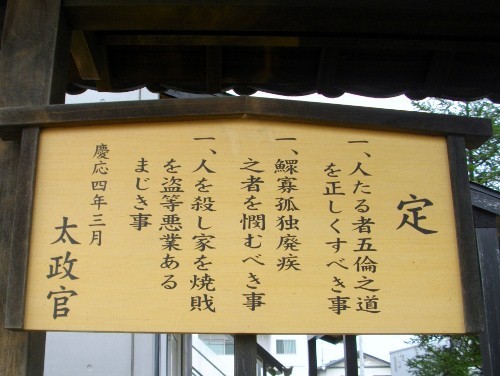 定
一、人たる者五倫之道
を正しくすべき事
一、鰥寡孤独廃疾
之者を憫むべき事
一、人を殺し家を焼戝
を盗等悪業ある
まじき事
慶応四年三月
太政官